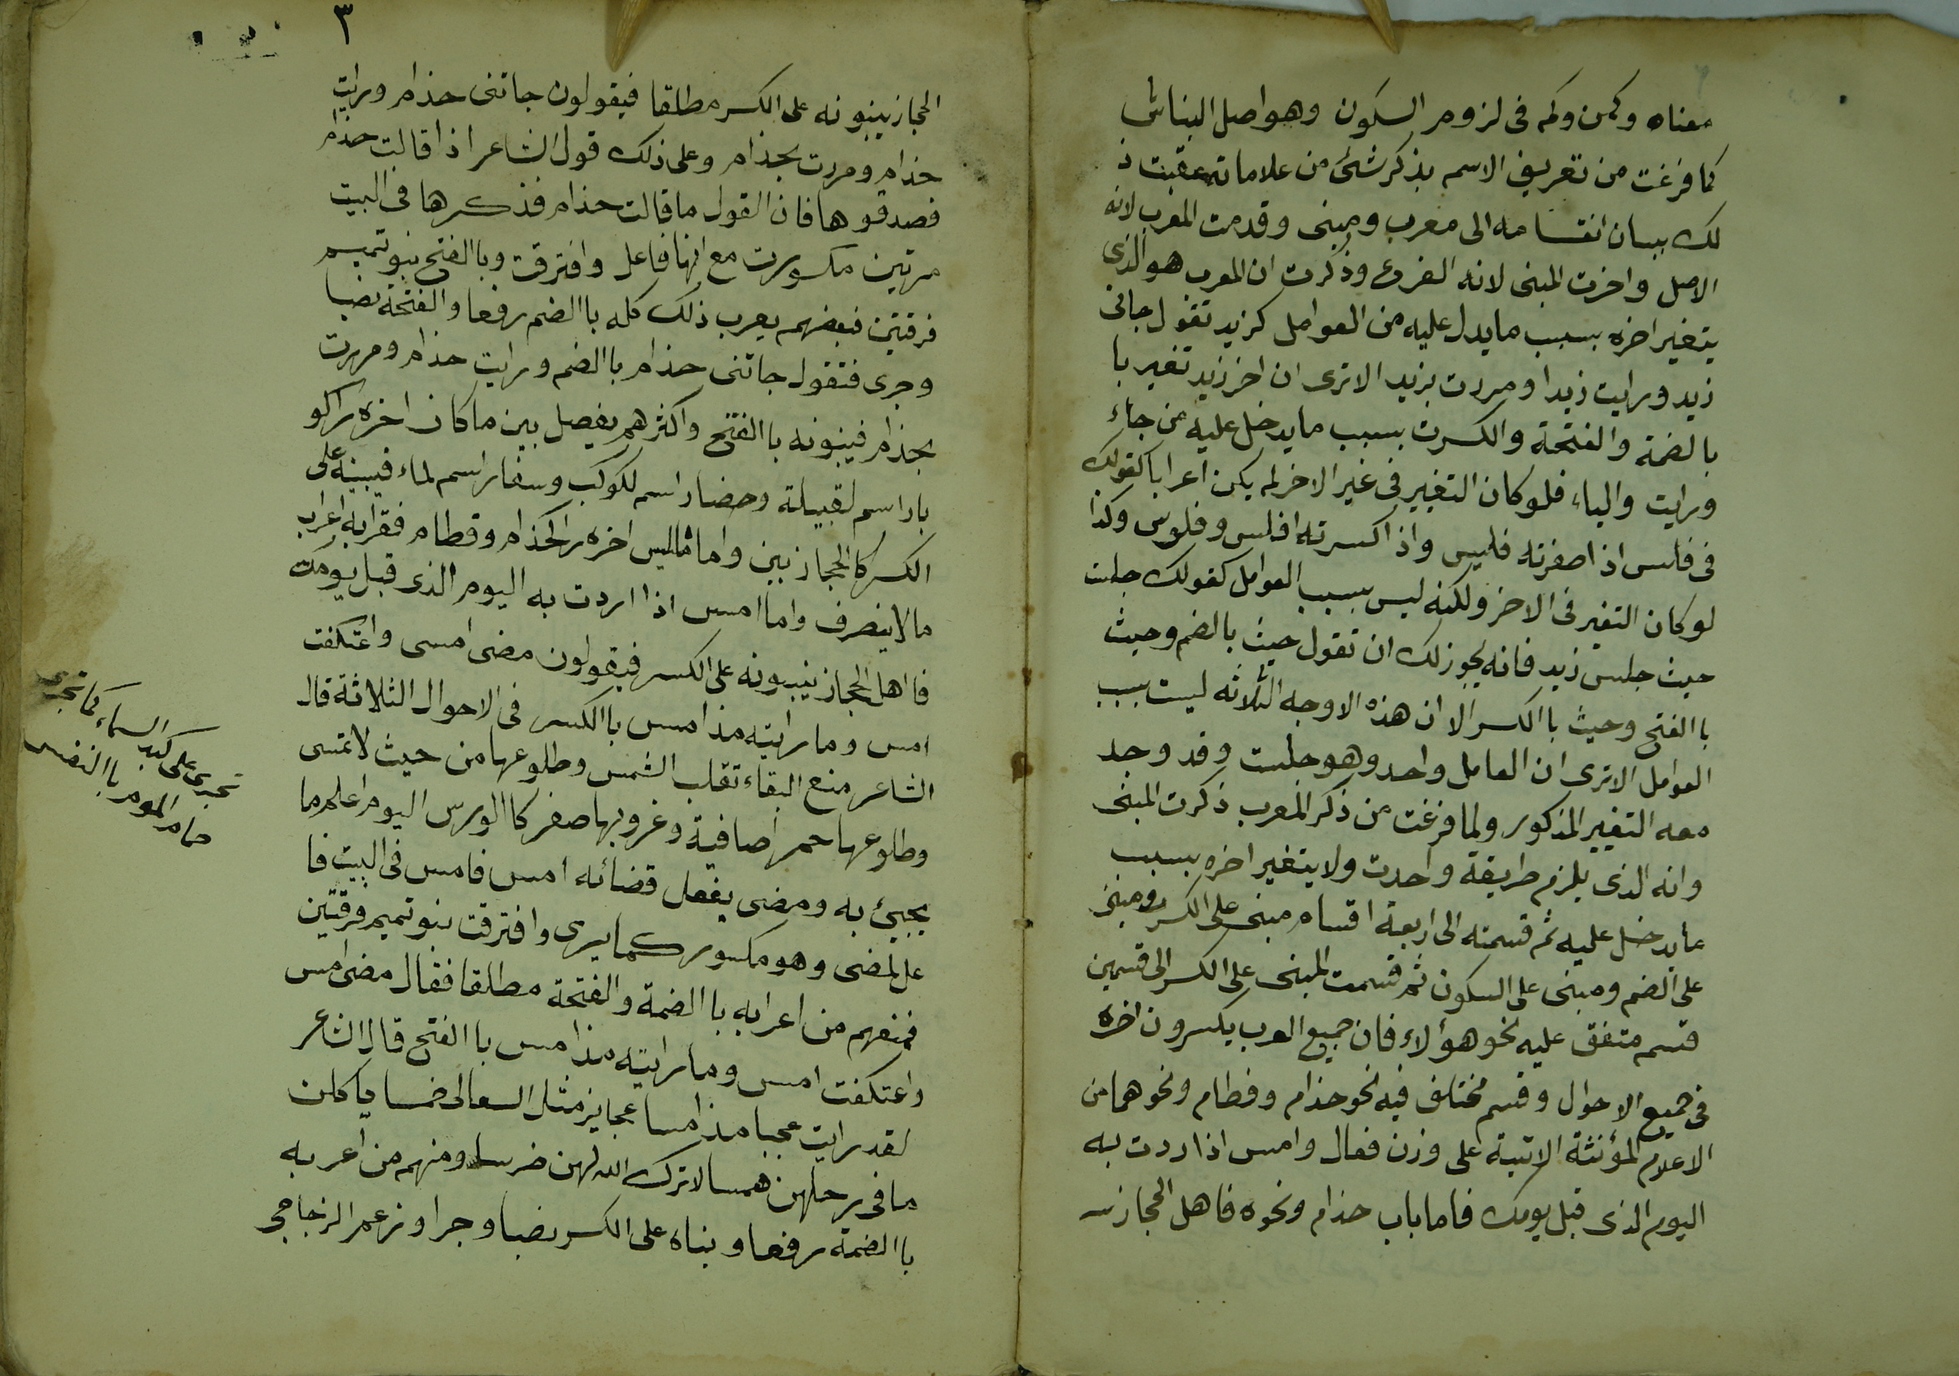 معناه وكمن وكم فى لزوم السكون وهو اصل البناش
كما فرغت من تعريف الاسم بذكر شئ من علاماته عقبت ذ
لك ببيان انقسامه الى معرب ومبنى وقدمت المعرب لانه
الاصل واخرت المبنى لانه الفرع وذكرت ان المعرب هو الذى
يتغير اخره بسبب ما يدل عليه من العوامل كزيد تقول جانى
زيد ورايت زيدا ومررت بزيد الا ترى ان اخر زيد تغير با
بالضمة والفتحة والكسرت بسبب ما يدخل عليه من جاء
ورايت والباء فلو كان التغير فى غير الاخر لم يكن اعرابا كقولك
فى فلس اذا صغرته فليس واذا كسرته افلس وفلوس وكذا
لو كان التغير فى الاخر ولكنه ليس بسبب العوامل كقولك جلست
حيث جلس زيد فانه يجوز لك ان تقول حيث بالضم وحيث
باالفتح وحيث باالكسر الا ان هذه الاوجه الثلاثه ليست بسبب
العوامل الا ترى ان العامل واحد وهو جلست وقد وجد
معه التغيير المذكور ولما فرغت من ذكر المعرب ذكرت المبنى
وانه الذى يلزم طريقة واحدت ولا يتغير اخره بسبب
ما يدخل عليه ثم قسمته الى اربعة اقسام مبنى على الكسر ومبنى
على الضم ومبنى على السكون ثم قسمت المبنى على الكسر الى قسمين
قسم متفق عليه نحو هؤلاء فان جميع العرب يكسرون اخره
فى جميع الاحوال وقسم مختلف فيه نحو حذام وقطام ونحوهما من
الاعلام المؤنثة الاتية على وزن فعال وامس اذا اردت به
اليوم الذى قبل يومك فاما باب حذام ونحوه فاهل الحجاز
٣
الحجاز يبنونه على الكسر مطلقا فيقولون جاتنى حذام ورايت
حذام ومررت بحذام وعلى ذلك قول الشاعر اذا قالت حذام
فصدقوها فان القول ما قالت حذام فذكرها فى البيت
مرتين مكسورت مع انها فاعل وافترقت وباالفتح بنو تميم
فرقتين فبعضهم يعرب ذلك كله باالضم رفعا والفتحة نصبا
وجرى فتقول جاتنى حذام باالضم ورايت حذام ومررت
بحذام فيبنونه باالفتح واكثرهم يفصل بين ما كان اخره راكو
بار اسم لقبيلة وحضار اسم لكوكب وسفار اسم لماء فيبنيه على
الكسر كالحجازيين واما ما ليس اخره راكحذام وقطام فقرابه اعراب
مالا ينصرف واما امس اذا اردت به اليوم الذى قبل يومك
فااهل الحجاز يبنونه على الكسر فيقولون مضى امسى واعتكفت
امس وما رايته مذامس باالكسر فى الاحوال الثلاثة قال
الشاعر منع البقاء تقلب الشمس وطلوعها من حيث لا تمسى
وطلوعها حمرا صافية وغروبها صفر كاالورس اليوم اعلم ما
يجيئ به ومضى بفصل قضائه امس فامس فى البيت فا
عل لمضى وهو مكسور كما يرى وافترقت بنو تميم فرقتين
فمنهم من اعرابه باالضمة والفتحة مطلقا فقال مضى امس
واعتكفت امس وما رايته مذامس باالفتح قال الشاعر
لقد رايت عجبا مذامسا عجايز مثل السعالى خمسا ياكلن
ما فى رحلهن همسا لا ترك الله لهن ضرسا ومنهم من اعربه
باالضمة رفعا وبناه على الكسر نصبا وجرا وزعم الزجاجى
تجرى على كبد السماء كما تجرى
حمام الموم باالنفس